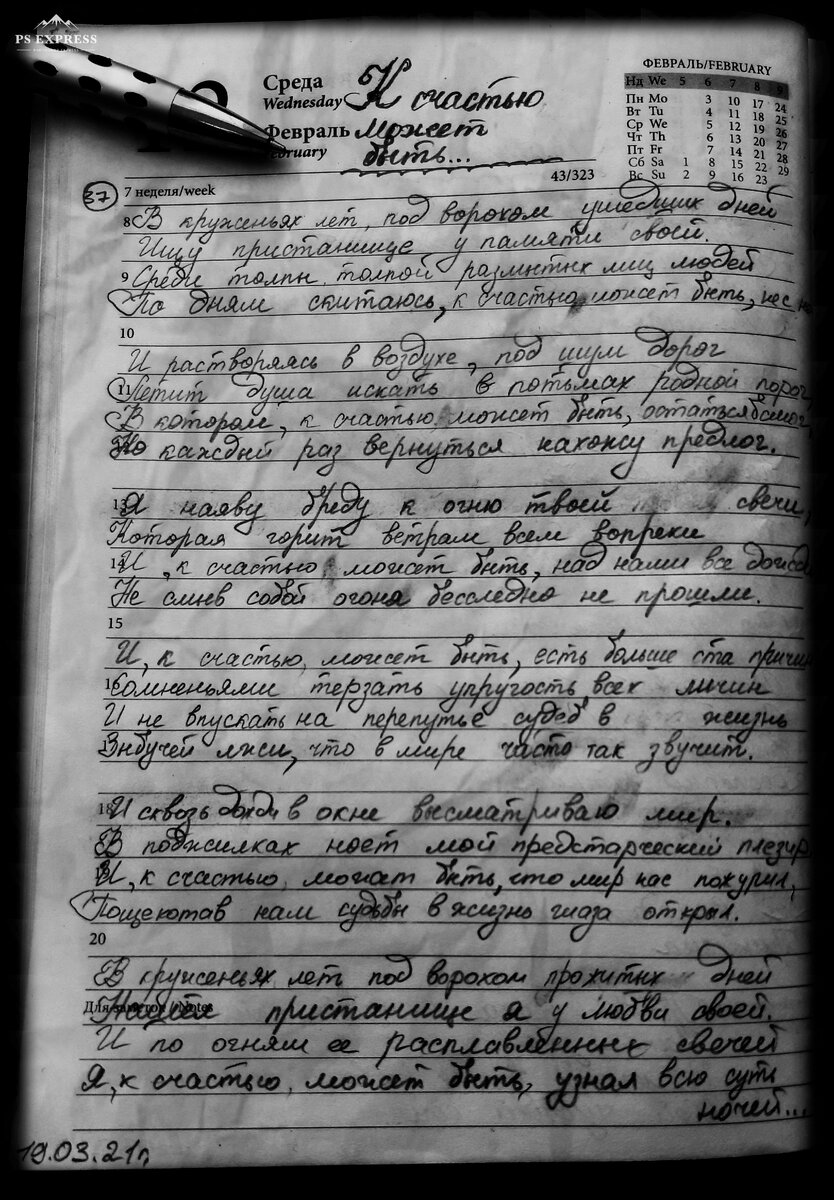 PS EXPRESS
Среда
Wednesday
Февраль
К счастью
может
быть...
ФЕВРАЛЬ/FEBRUARY
Нд We 5 6 7 8 9
Пн Mo 3 10 17 24
Вт Tu 4 11 18 25
Ср We 5 12 19 26
Чт Th 6 13 20 27
Пт Fr 7 14 21 28
Сб Sa 1 8 15 22 29
Вс Su 2 9 16 23
43/323
37
7 неделя/week
8 В круженьях лет, под ворохом ушедших дней
Ищу пристанище у памяти своей.
9 Среди толпы, толпой размытых лиц людей
По дням скитаюсь, к счастью, может быть, не с
10
И растворяясь в воздухе, под шум дорог
11 Летит душа искать в потьмах родной порог
В котором, к счастью, может быть, остаться б смог,
Но каждый раз вернуться нахожу предлог.
13 Я наяву бреду к огню твоей свечи,
Которая горит ветрам всем вопреки
14 И, к счастью, может быть, над нами все дожди
Не смыв собой огона бесследно не прошли.
15
И, к счастью, может быть, есть больше ста причин
Сомненьями терзать упругость всех личин
И не впускать на перепутье судеб в жизнь
Зыбучей лжи, что в мире часто так звучит.
18 И сквозь дожди в окне высматриваю мир.
В поджилках ноет мой предстарческий плезир
И, к счастью, может быть, что мир нас похурил,
Пощекотав нам судьбы в жизнь глаза открыл.
20
В круженьях лет под ворохом прожитых дней
Для заметок / Notes
пристанище я у любви своей.
И по огням ее расплавленных свечей
Я, к счастью, может быть, узнал всю суть
ночей...
19.03.21г.